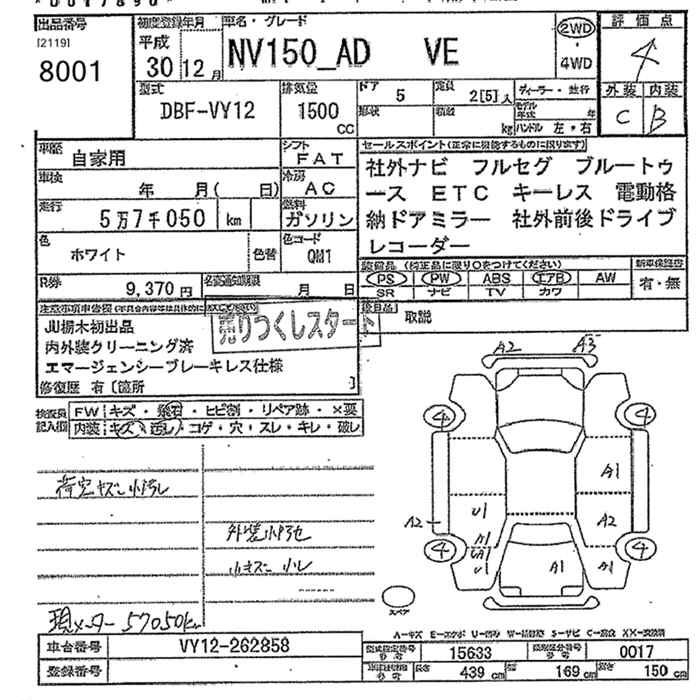 出品番号
[2119]
8001
初度登録年月
平成
30 12 月
車名・グレード
NV150_AD VE
2WD
・
4WD
評価点
4
外装 内装
C B
型式
DBF-VY12
排気量
1500
CC
ドア
5
形状
定員
2[5]人
積載
kg
ディーラー・並行
モデル
年式 年
ハンドル 左・右
車歴
自家用
シフト
FAT
車検
年 月( 日)
冷房
AC
走行
5万7千050 km
燃料
ガソリン
色
ホワイト
色替
色コード
QM1
R券
9,370 円
名変通知期限
月 日
セールスポイント(正常に機能するものに限ります)
社外ナビ フルセグ ブルートゥ
ース ETC キーレス 電動格
納ドアミラー 社外前後ドライブ
レコーダー
装備品 (純正品に限り○をつけてください)
PS PW ABS エアB AW
SR ナビ TV カワ
新車保証書
有・無
後日品
取説
注意事項申告欄
JU栃木初出品
内外装クリーニング済
エマージェンシーブレーキレス仕様
修復歴 有〔箇所 〕
売りつくしスタート
検査員
記入欄
FW キズ・飛石・ヒビ割・リペア跡・×要
内装 キズ・汚レ・コゲ・穴・スレ・キレ・破レ
荷室キズ小汚レ
外装小汚色
小キズ 小凹
現メーター57050km
A2 A3
4 4
A1
U1 A2
A2
A1
4 4
U1 A1 A1
スペア
A-キズ E-エクボ U-凹み W-補修跡 S-サビ C-腐食 XX-交換済
車台番号
VY12-262858
登録番号
型式指定番号
15633
類別区分番号
0017
長さ 439 cm
幅 169 cm
高さ 150 cm